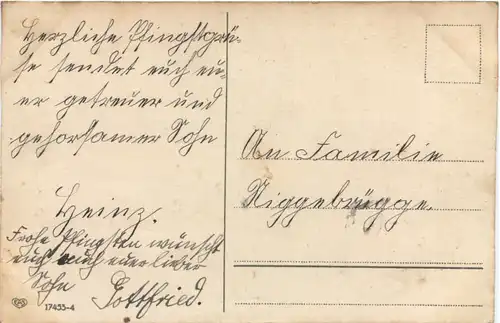 Herzliche Pfingstgrü-
ße sendet euch eu-
er getreuer und
gehorsamer Sohn
Heinz.
Frohe Pfingsten wünscht
euch auch euer lieber
Sohn Gottfried.
An Familie
Niggebrügge.
17455-4